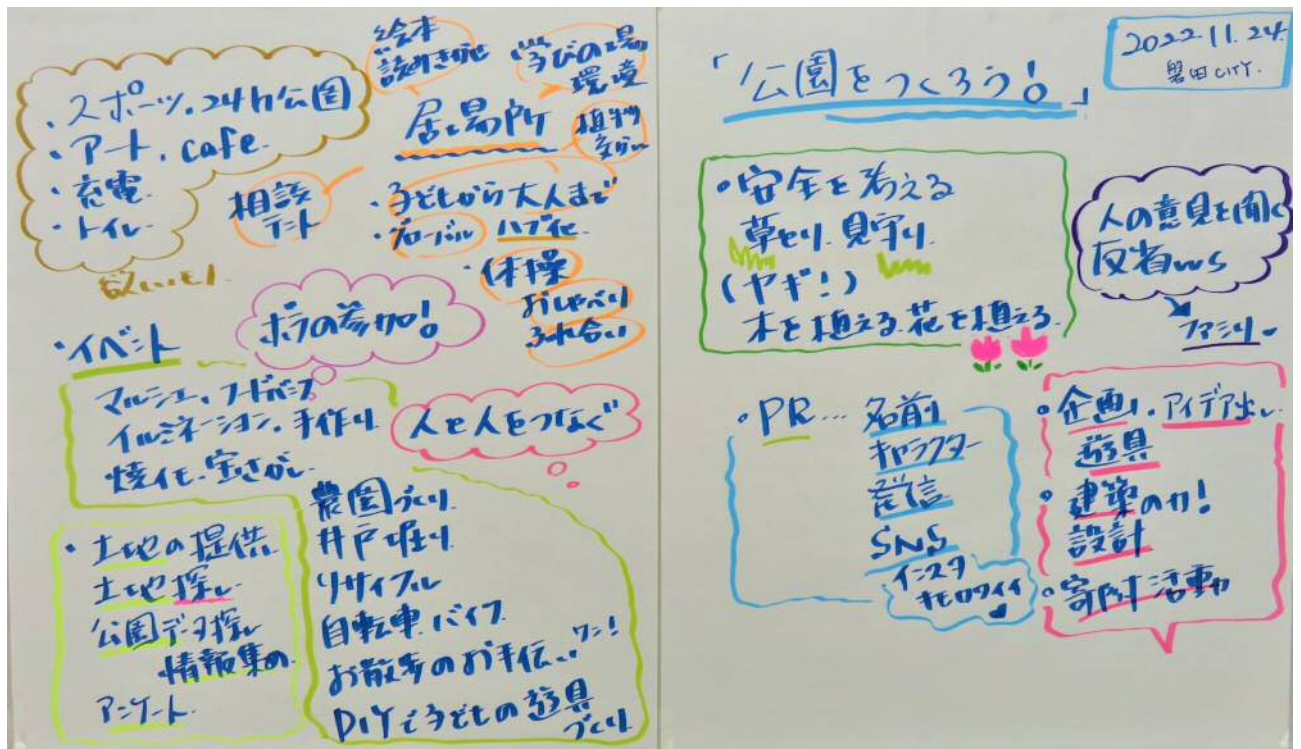 ・スポーツ.24h公園
・アート. cafe.
・充電.
・トイレ.
欲しいモノ
絵本
読みきかせ
学びの場
環境
居場所
植物
相談
テント
・子どもから大人まで
・グローバル ハブ化
・体操
おしゃべり
ふれ合い
ボラの参加!
・イベント
マルシェ、フードバンス
イルミネーション.手作り
焼イモ.宝さがし
人と人をつなぐ
・土地の提供.
土地探し
公園データ探し
情報集め.
アンケート.
農園づくり
井戸堀り
リサイクル
自転車.バイク
お散歩のお手伝い ワン!
DIYで子どもの遊具
づくり
「公園をつくろう!」
2022.11.24.
磐田CITY.
・安全を考える
草とり.見守り
(ヤギ!)
木を植える.花を植える
人の意見を聞く
反省ws
ファシリ
・PR…名前
キャラクター
発信
SNS
インスタ
キモカワイイ
・企画.アイデア出し
遊具
・建築の力!
設計
・寄附活動